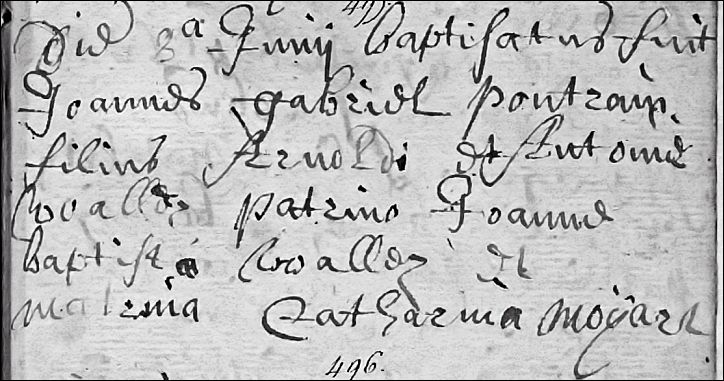 Die 3a Junij baptisatus fuit
Joannes gabriel pontrain
filius Arnoldi et Antoniæ
Wallez patrino Joanne
baptista Wallez et
matrina Catharina Moÿart
496.